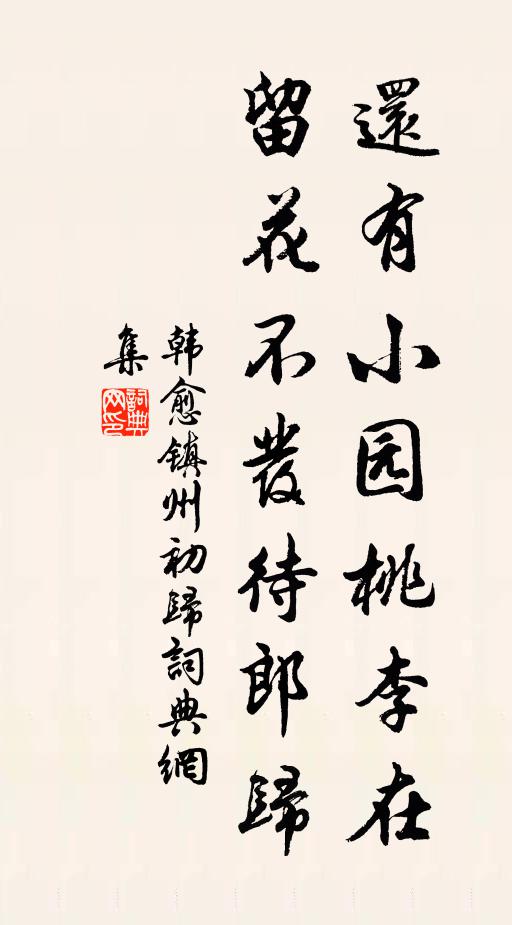 還有小园桃李在
留花不發待郎歸
韩愈镇州初歸詞典網
集
詞典
网印